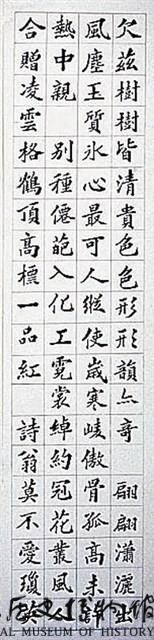 欠茲樹樹皆清貴色色形形韻亦奇 翩翩瀟灑出
風塵玉質氷心最可人縱使歲寒崚傲骨孤高未許
熱中親 別種僊葩入化工霓裳綽約冠花叢風
合贈凌雲格鶴頂高標一品紅 詩翁莫不愛瓊英
AL MUSEUM OF HISTORY